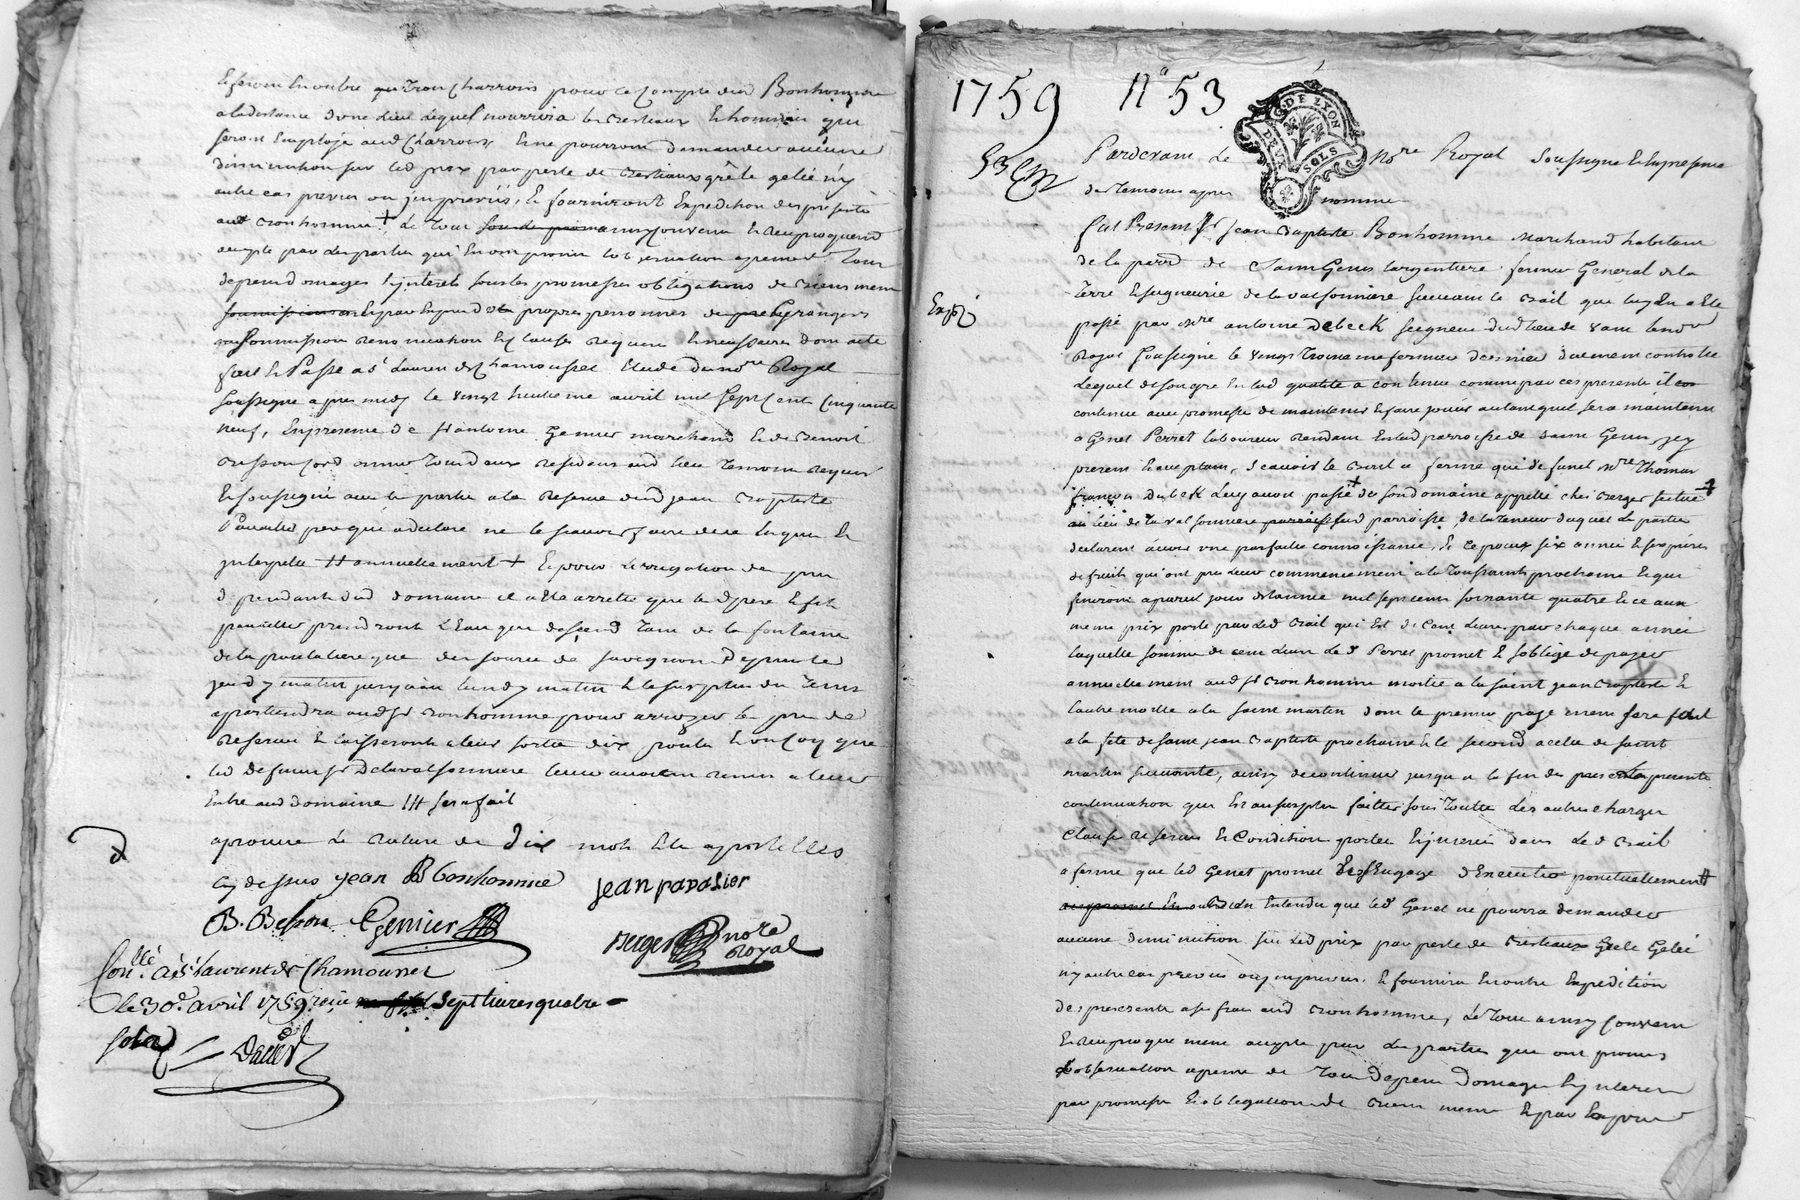 feront en outre quatre charrois pour le compte dud Bonhomme
a la distance d'une lieu lequel nourrira les bestiaux et hommes qui
seront employé aud charrois et ne pourront demander aucune
diminution sur led prix par perte de bestiaux grêle gelée ny
autre cas prevus ou jmprevüs, et fourniront expedition des presente
aud bonhomme + le tout ainsy convenu et reciproquement
accepté par les parties qui en ont promis l'observation a peine de tous
depens domages et jnterets sous les promesses obligations de biens
soumission renonciation et clauses requises et necessaires dont acte
fait et Passé a St Laurent de Chamousset etude du nore Royal
soussigné apres midy le vingt huitieme avril mil sept cent cinquante
neuf, en presence de sr antoine Genier marchand et de benoit
besson cordonnier tous deux residens aud lieu temoins requis
et soussigné avec les parties a la reserve dud jean baptiste
Pavalier pere qui a declaré ne le scavoir faire de ce enquis et
jnterpellé # annuellement + et pour l'irrigation des prés
dependants dud domaine il a été arretté que les d pere et fils
pavallier prendront l'eau qui descend tant de la fontaine
de la poulatiere que des source de savignon depuis le
jeudy matin jusqu'au lundy matin et le surplus du tems
apartiendra aud sr bonhomme pour arroser les prés de
reserve et laisseront a leur sortie dix poules et un coq que
led defunt sr Delavalsonniere leur avoit remis a leur
entré aud domaine ⧻ sera fait
aprouvé la rature de dix mots et les apostilles
cy dessus jean B bonhomme jean pavalier
B. Besson Genier
Berger nore
Royal
Conllé. a St Laurent de Chamousset
le 30e. avril 1759 reçu sept livres quatre
sols
1759 n° 53
DE LYON
DEUX SOLS
Pardevant le nore Royal soussigné et en presence
des temoins apres nommes
fut Present Sr jean baptiste Bonhomme marchand habitant
de la parr de Saint Genis largentiere fermier General de la
Expié
terre et seigneurie de la valsonniere suivant le bail que luy en a été
passé par mre antoine Debeck seigneur dud lieu devant le nore
Royal soussigné le vingt troisieme fevrier dernier duement controllé
Lequel de son gré en lad qualité a continué comme par ces presente il
continue avec promesse de maintenir et faire jouir autant qu'il sera maintenu
a Genet Perret laboureur residant en lad parroisse de Saint Genis, jcy
present et acceptant, scavoir le bail a ferme que defunt mre Thomas
françois debeck luy avoit passé + de son domaine appellé chez berger scitué +
au lieu de la valsonniere susd parroisse, de la teneur duquel les parties
declarent avoir une parfaite connoissance, et ce pour six année et six prises
de fruits qui ont pris leur commencement a la toussaints prochaine et qui
finiront a pareil jour de l'année mil sept cent soixante quatre et ce aux
meme prix porté par led bail qui est de Cent livres par chaque année
laquelle somme de cent livres le d Perret promet et s'oblige de payer
annuellement aud sr bonhomme moitié a la saint jean Baptiste et
l'autre moitié a la saint martin dont le premier payement sera fait
a la fete de saint jean Baptiste prochaine et le second a celle de saint
martin suivante, ainsy de continuer jusqu'a la fin de la presente
continuation qui est au surplus faitte sous toutte les autres charges
Clause reserves et Condition portée et jnserée dans led bail
a ferme que led Genet promet et s'Engage d'Executer ponctuellement #
bien entendu que led Genet ne pourra demander
aucune diminution sur led prix par perte de bestiaux grele gelée
ny autre cas prevus ou jmprevus, et fournira en outre Expedition
des presente a ses frais aud bonhomme, le tout ainsy convenu
et reciproquement accepté par les parties qui ont promis
l'observation a peine de tous depens domages et jnterets
par promesse et obligation de biens meme et par